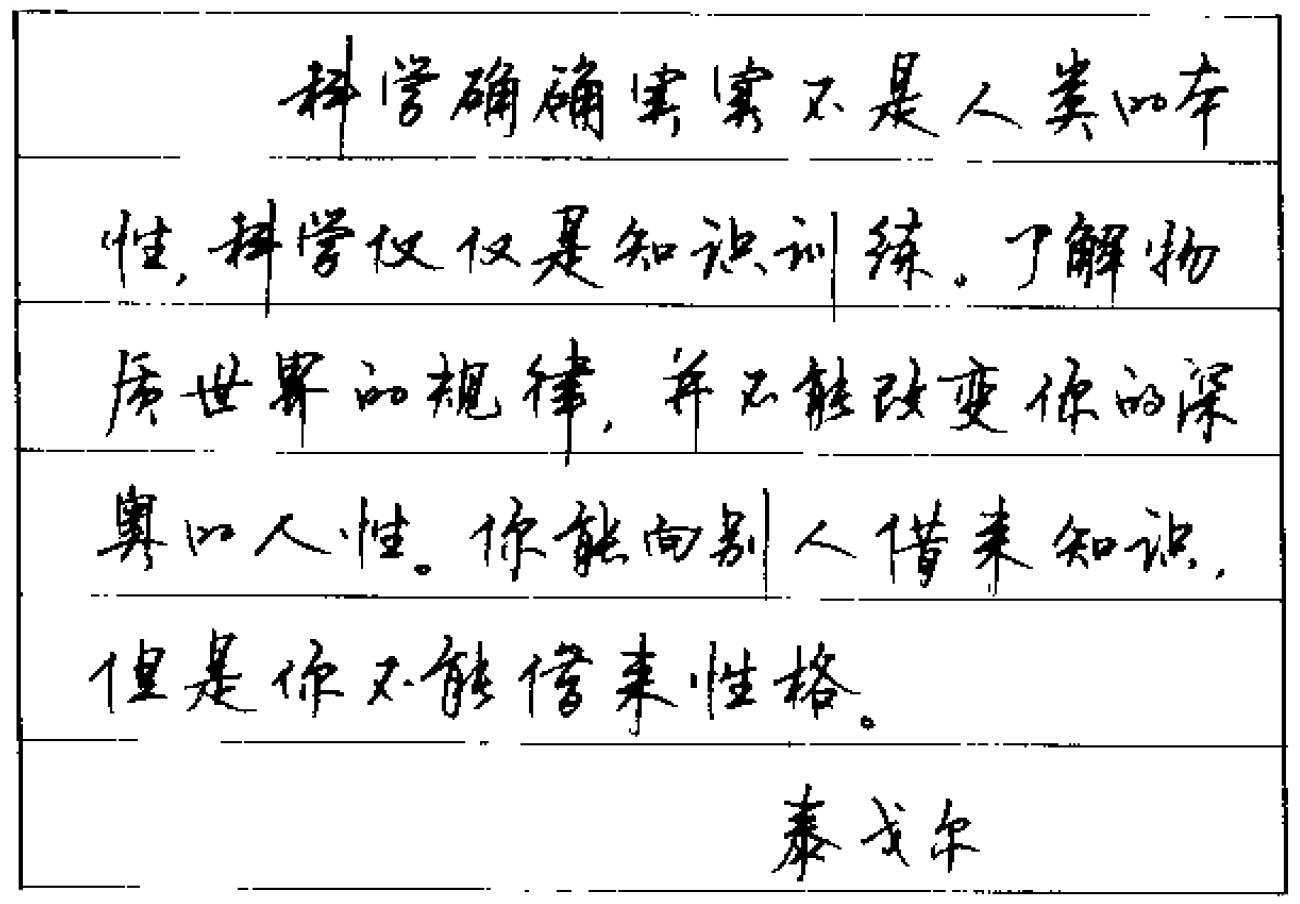 科学确确实实不是人类的本
性,科学仅仅是知识训练。了解物
质世界的规律,并不能改变你的深
奥的人性。你能向别人借来知识,
但是你不能借来性格。
泰戈尔